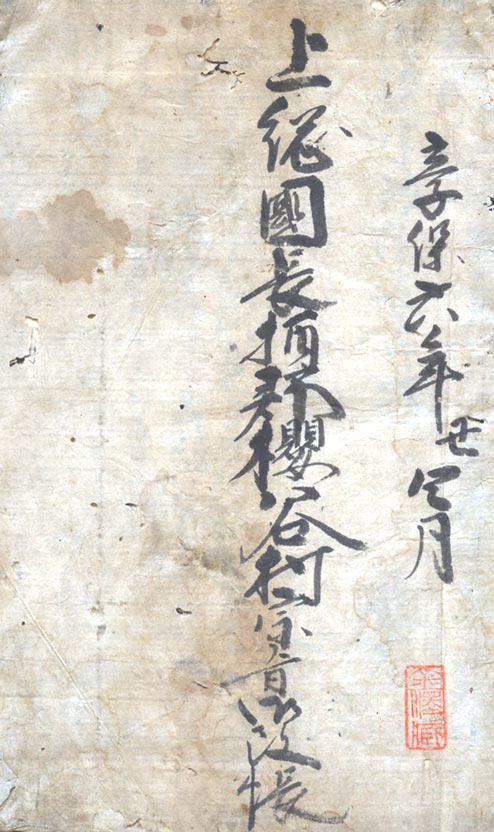 享保六年丑四月
上総國長柄郡櫻谷村宗旨御改帳